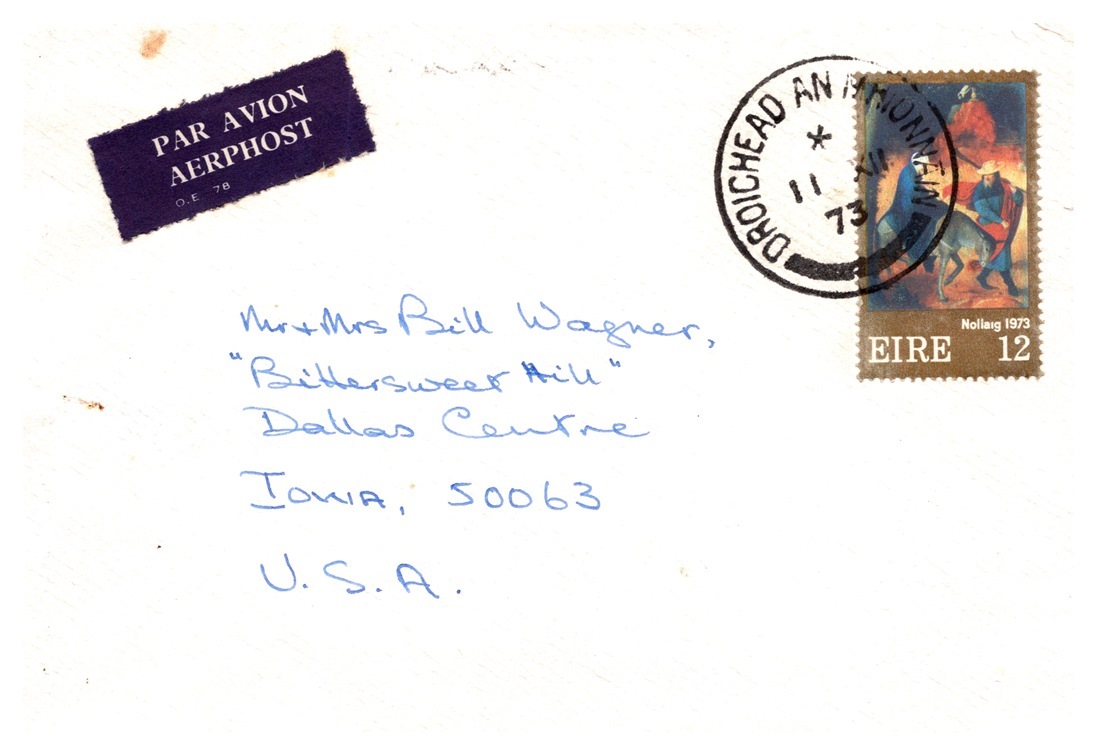 PAR AVION
AERPHOST
O.E 78
DROICHEAD AN MHIONNÁIN
*
11 XII
73
Nollaig 1973
EIRE 12
Mr + Mrs Bill Wagner,
"Bittersweet Hill"
Dallas Centre
Iowa, 50063
U.S.A.